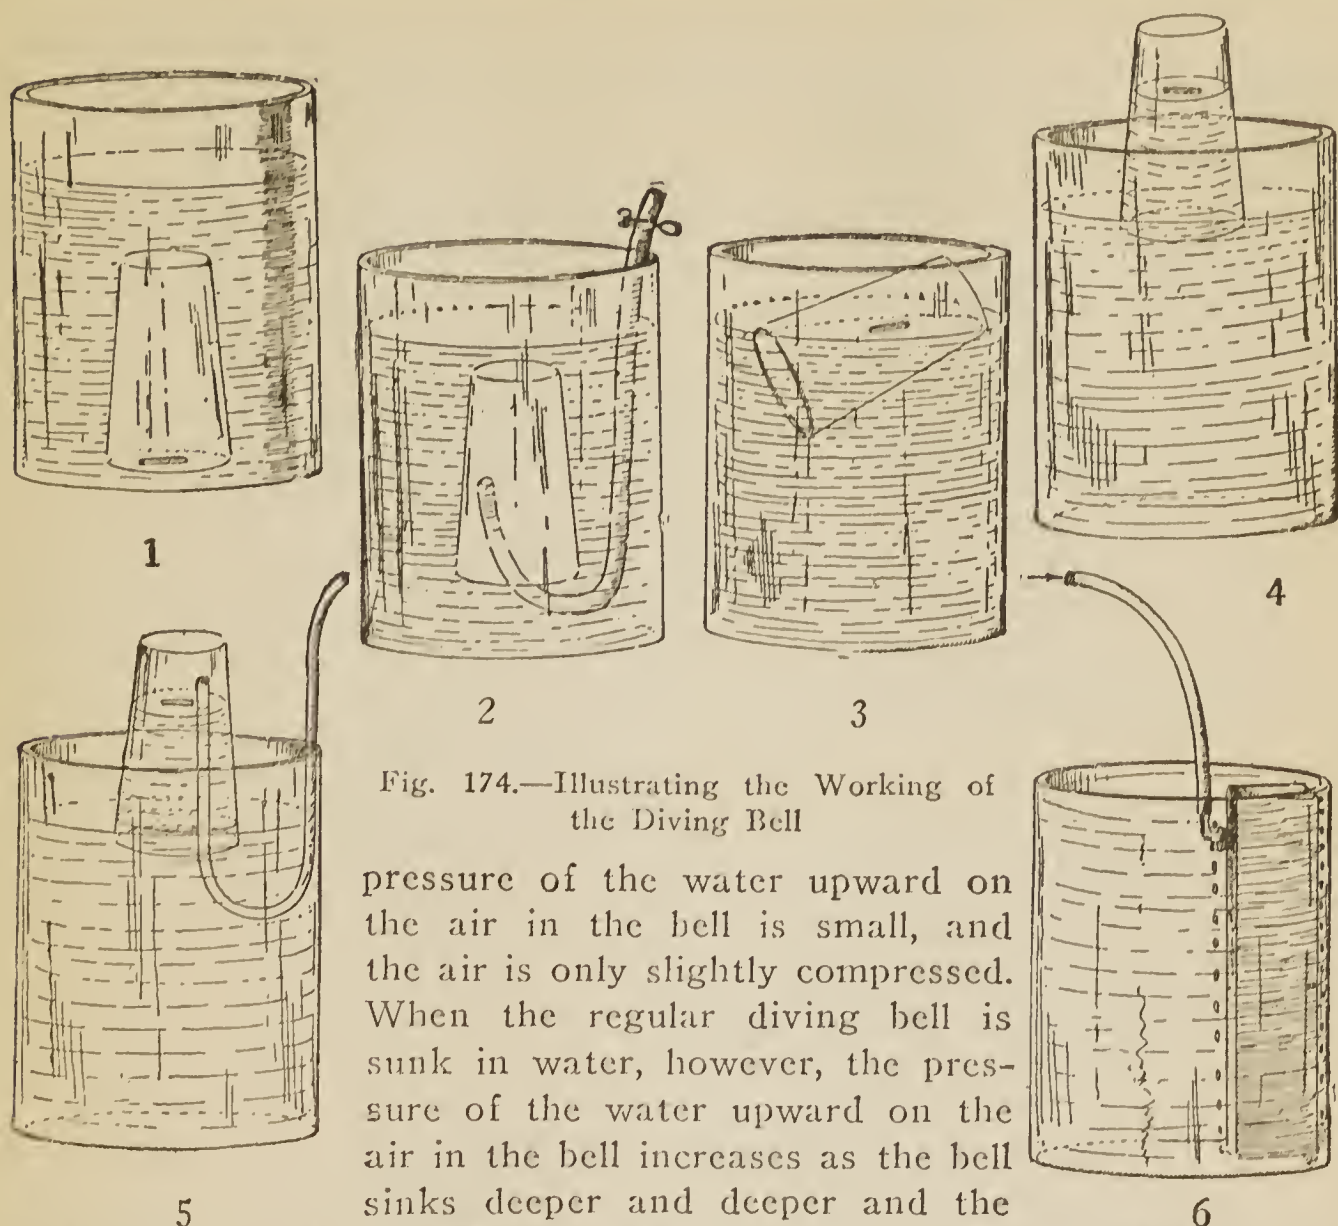 1
4
2
3
Fig. 174.—Illustrating the Working of
the Diving Bell
pressure of the water upward on
the air in the bell is small, and
the air is only slightly compressed.
When the regular diving bell is
sunk in water, however, the pres-
sure of the water upward on the
air in the bell increases as the bell
sinks deeper and deeper and the
5
6